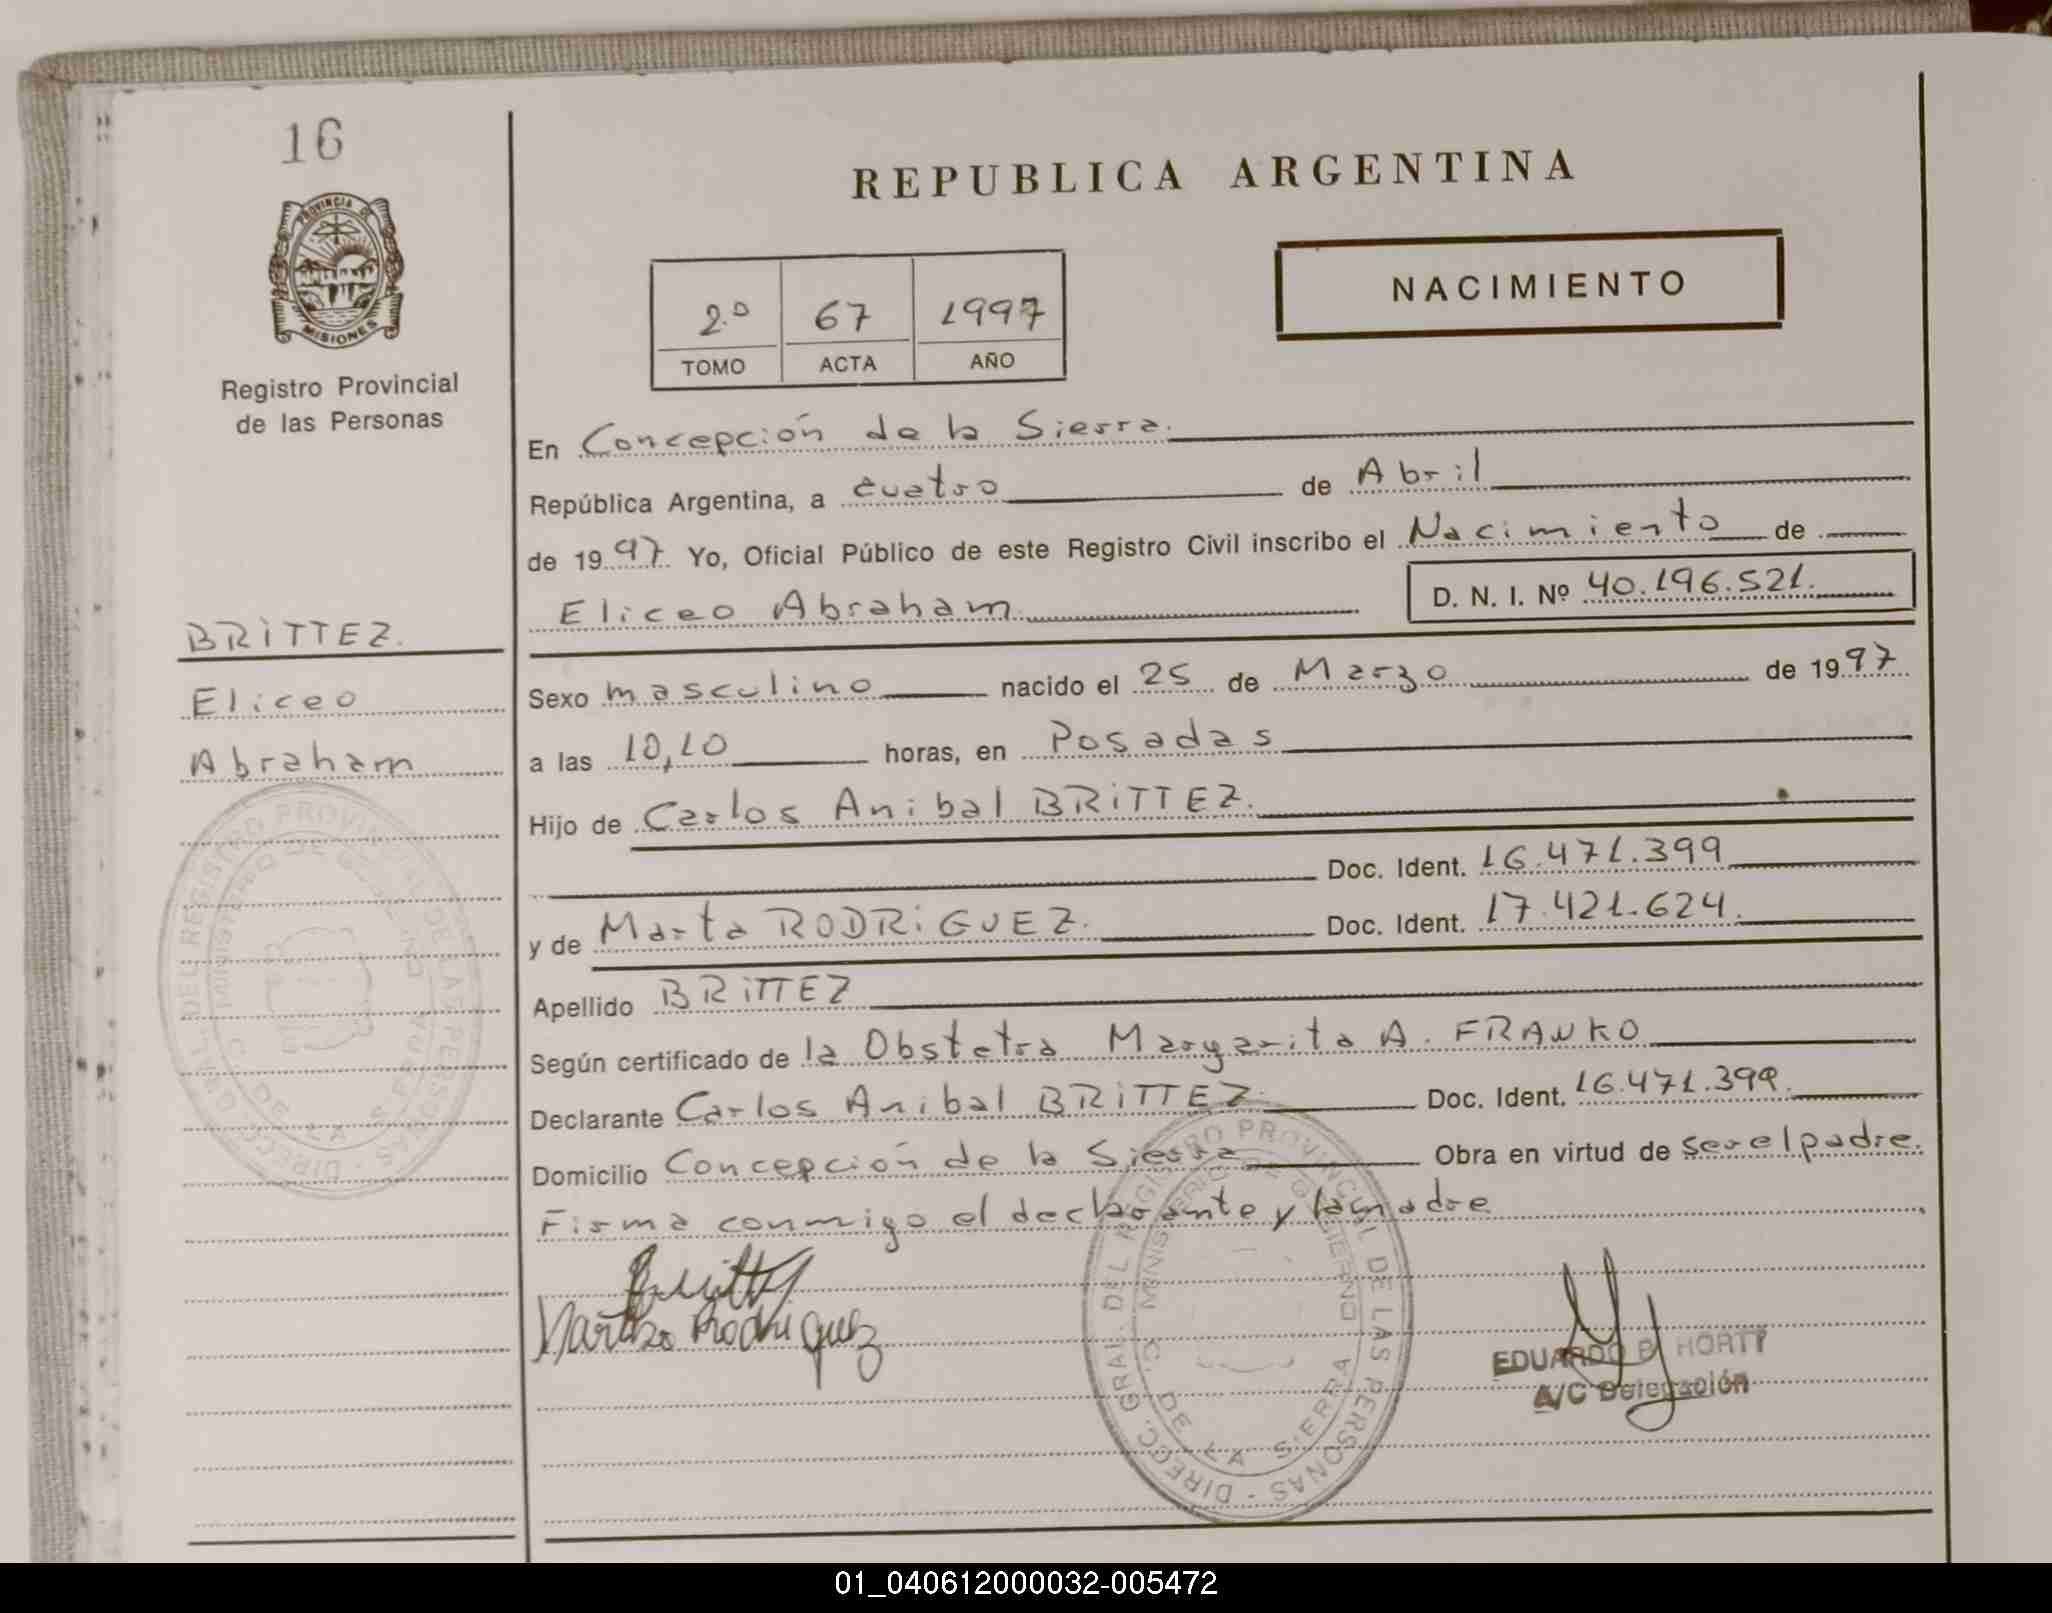 16
PROVINCIA DE
MISIONES
Registro Provincial
de las Personas
BRITTEZ.
Eliceo
Abraham
REPUBLICA ARGENTINA
NACIMIENTO
2º 67 1997
TOMO ACTA AÑO
En Concepción de la Sierra.
República Argentina, a cuatro de Abril
de 1997 Yo, Oficial Público de este Registro Civil inscribo el Nacimiento de
Eliceo Abraham D. N. I. Nº 40.196.521.
Sexo masculino nacido el 25 de Marzo de 1997
a las 10,10 horas, en Posadas
Hijo de Carlos Anibal BRITTEZ.
Doc. Ident. 16.471.399
y de Marta RODRIGUEZ. Doc. Ident. 17.421.624.
Apellido BRITTEZ
Según certificado de la Obstetra Margarita A. FRANKO
Declarante Carlos Anibal BRITTEZ. Doc. Ident. 16.471.399.
Domicilio Concepción de la Sierra Obra en virtud de ser el padre.
Firma conmigo el declarante y la madre
Marta Rodriguez
EDUARDO HORTT
A/C Delegación
DIRECC. GRAL. DEL REGISTRO PROVINCIAL DE LAS PERSONAS
MINISTERIO DE GOBIERNO
C. DE LA SIERRA
01_040612000032-005472